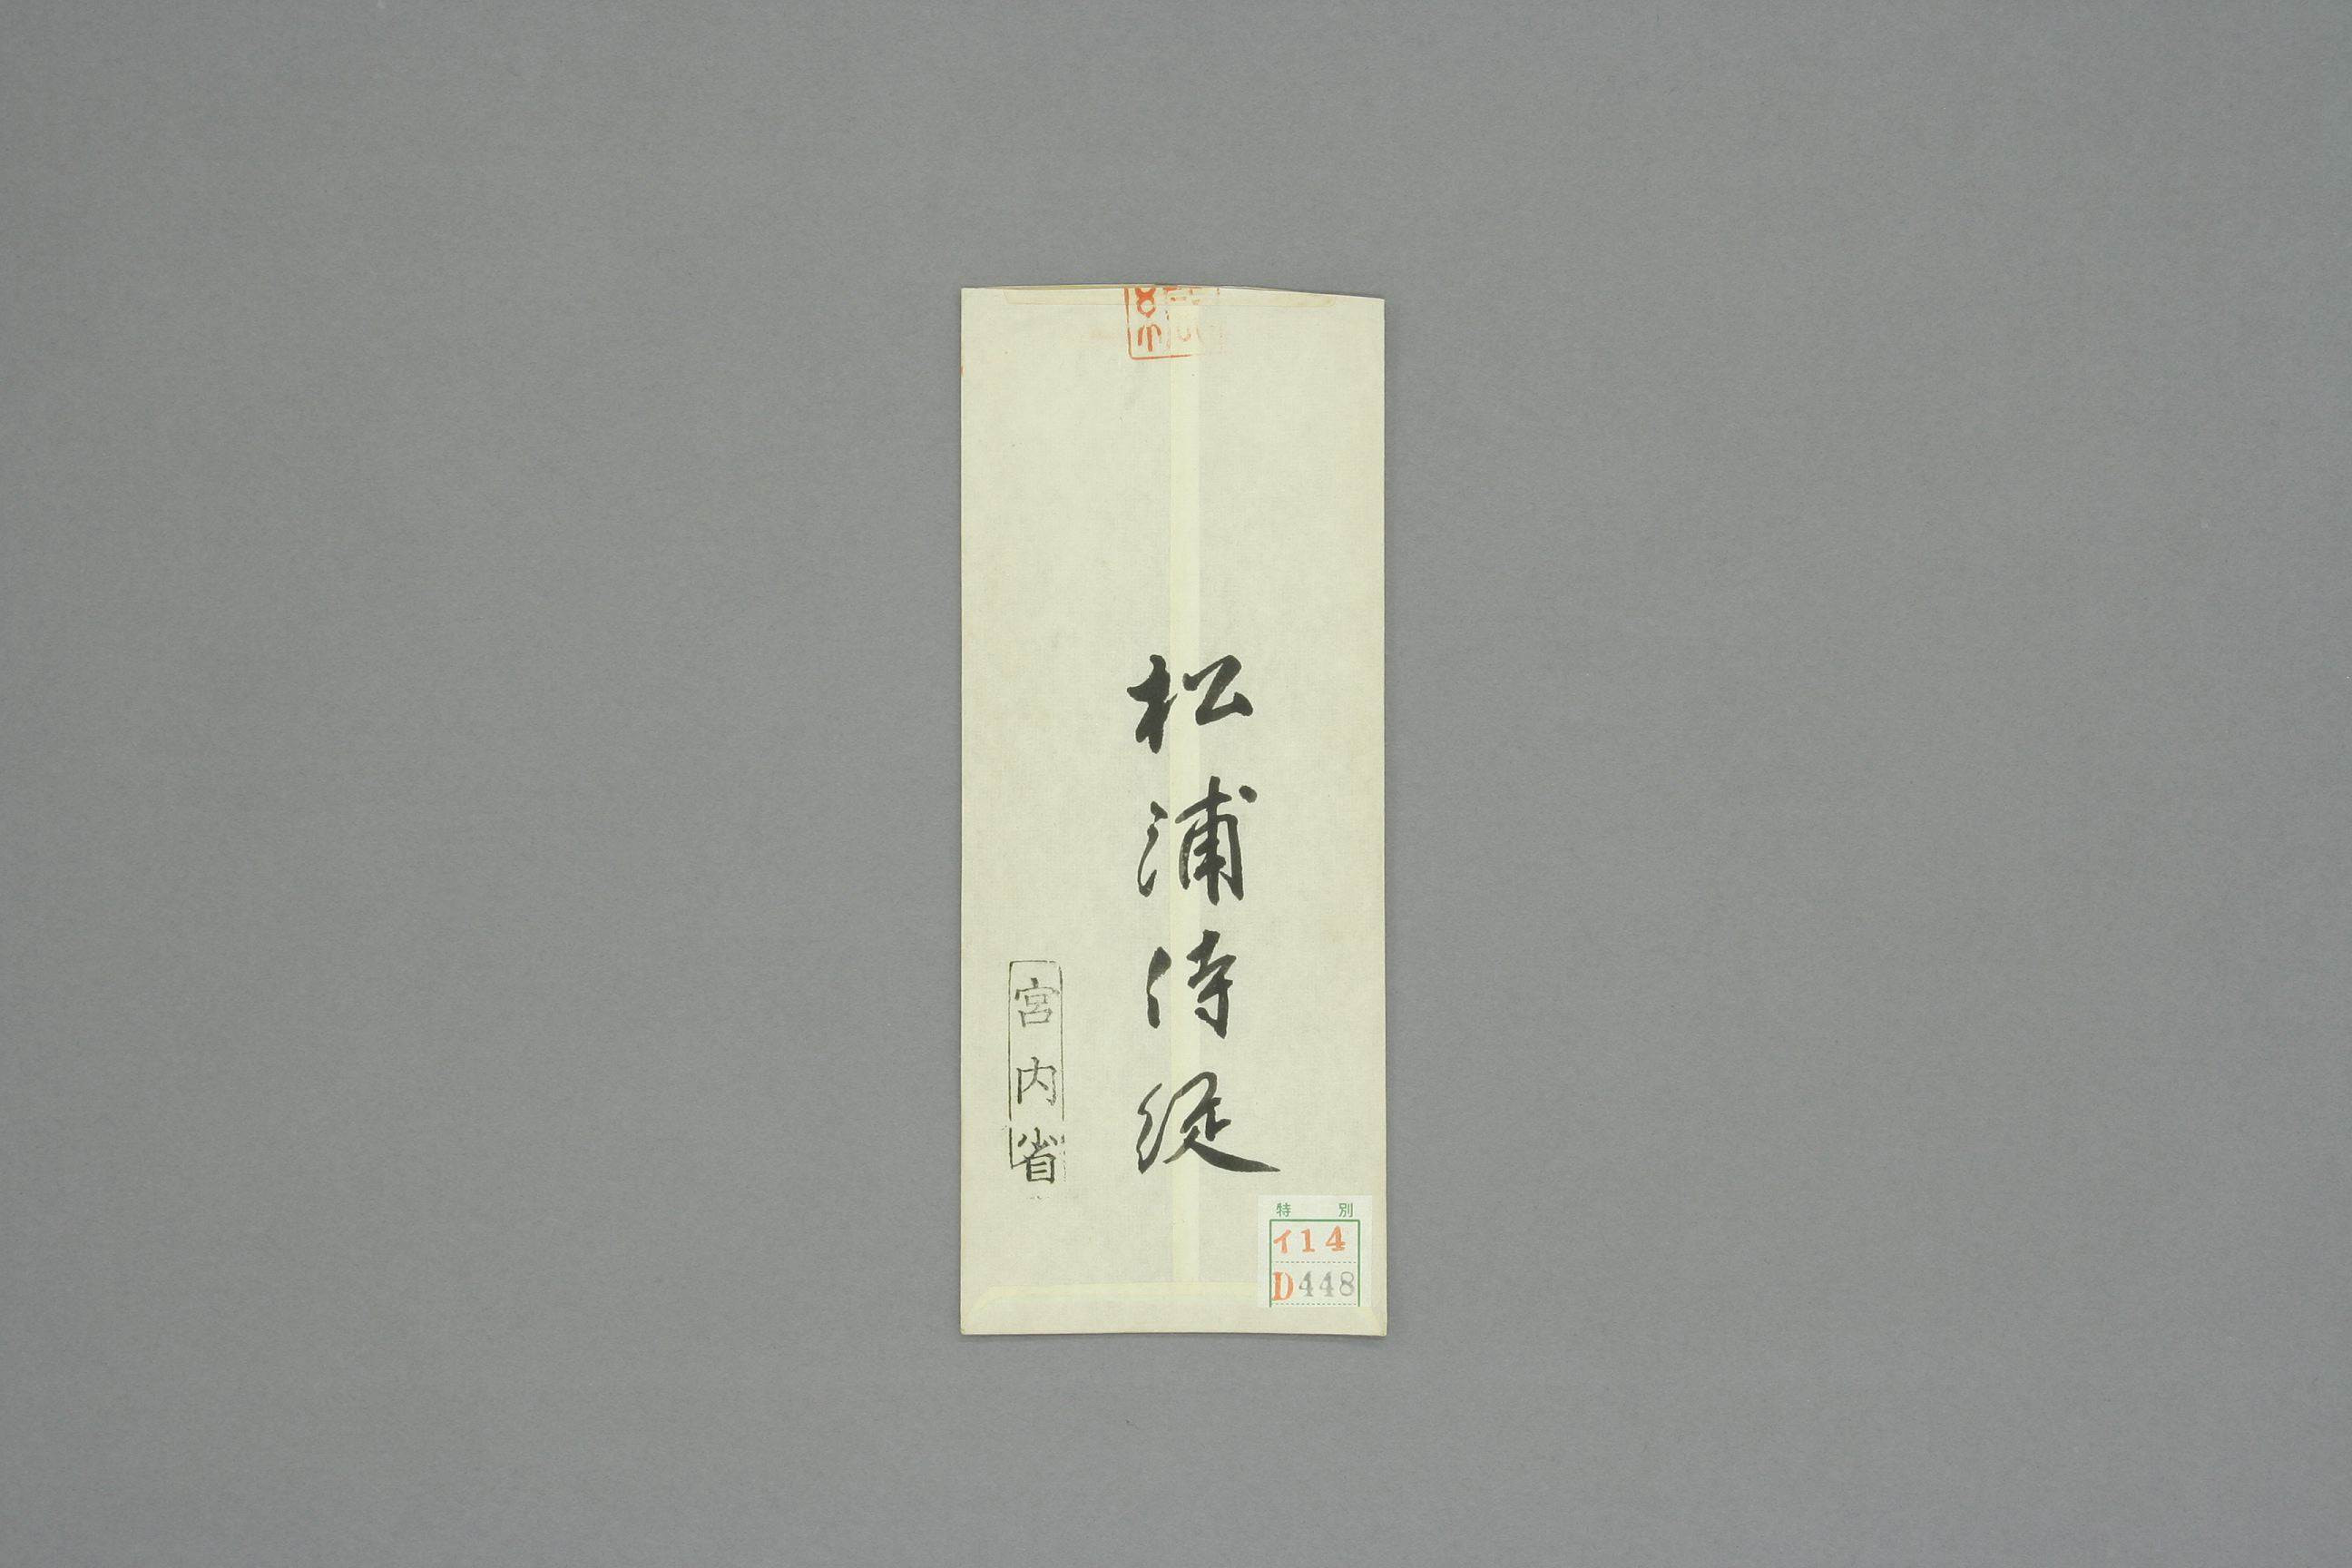 松浦侍従
宮内省
特別
イ14
D448